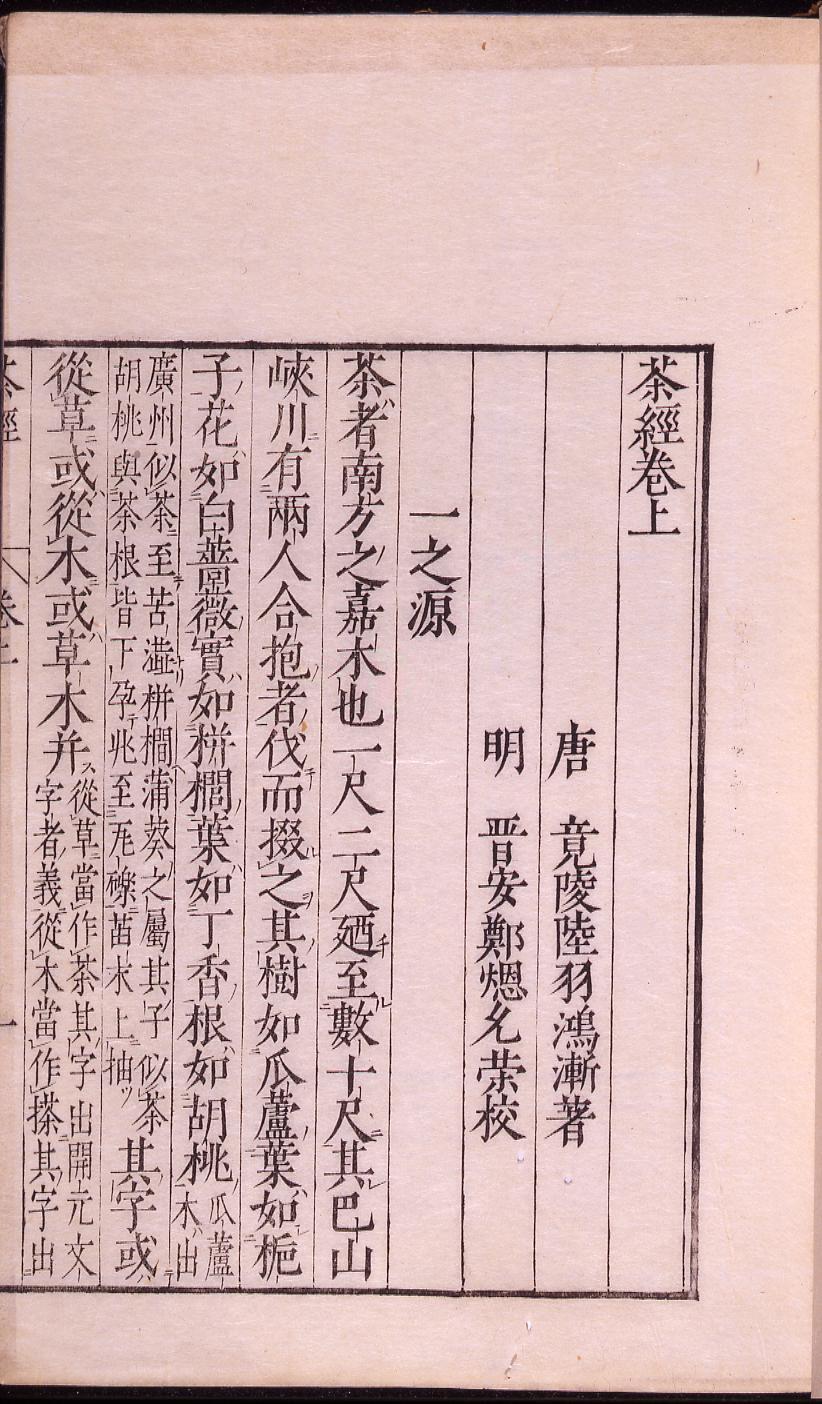 茶經卷上
唐　竟陵陸羽鴻漸著
明　晋安鄭熜允荣校
一之源
茶者南方之嘉木也一尺二尺廼至數十尺其巴山
峽川有兩人合抱者伐而掇之其樹如瓜蘆葉如梔
子花如白薔薇實如栟櫚葉如丁香根如胡桃瓜蘆木出
廣州似茶至苦澁栟櫚蒲葵之屬其子似茶胡桃與茶根皆下孕兆至瓦礫苗木上抽其字或
從草或從木或草木并從草當作茶其字出開元文字者義從木當作搽其字出
茶經
卷上
一